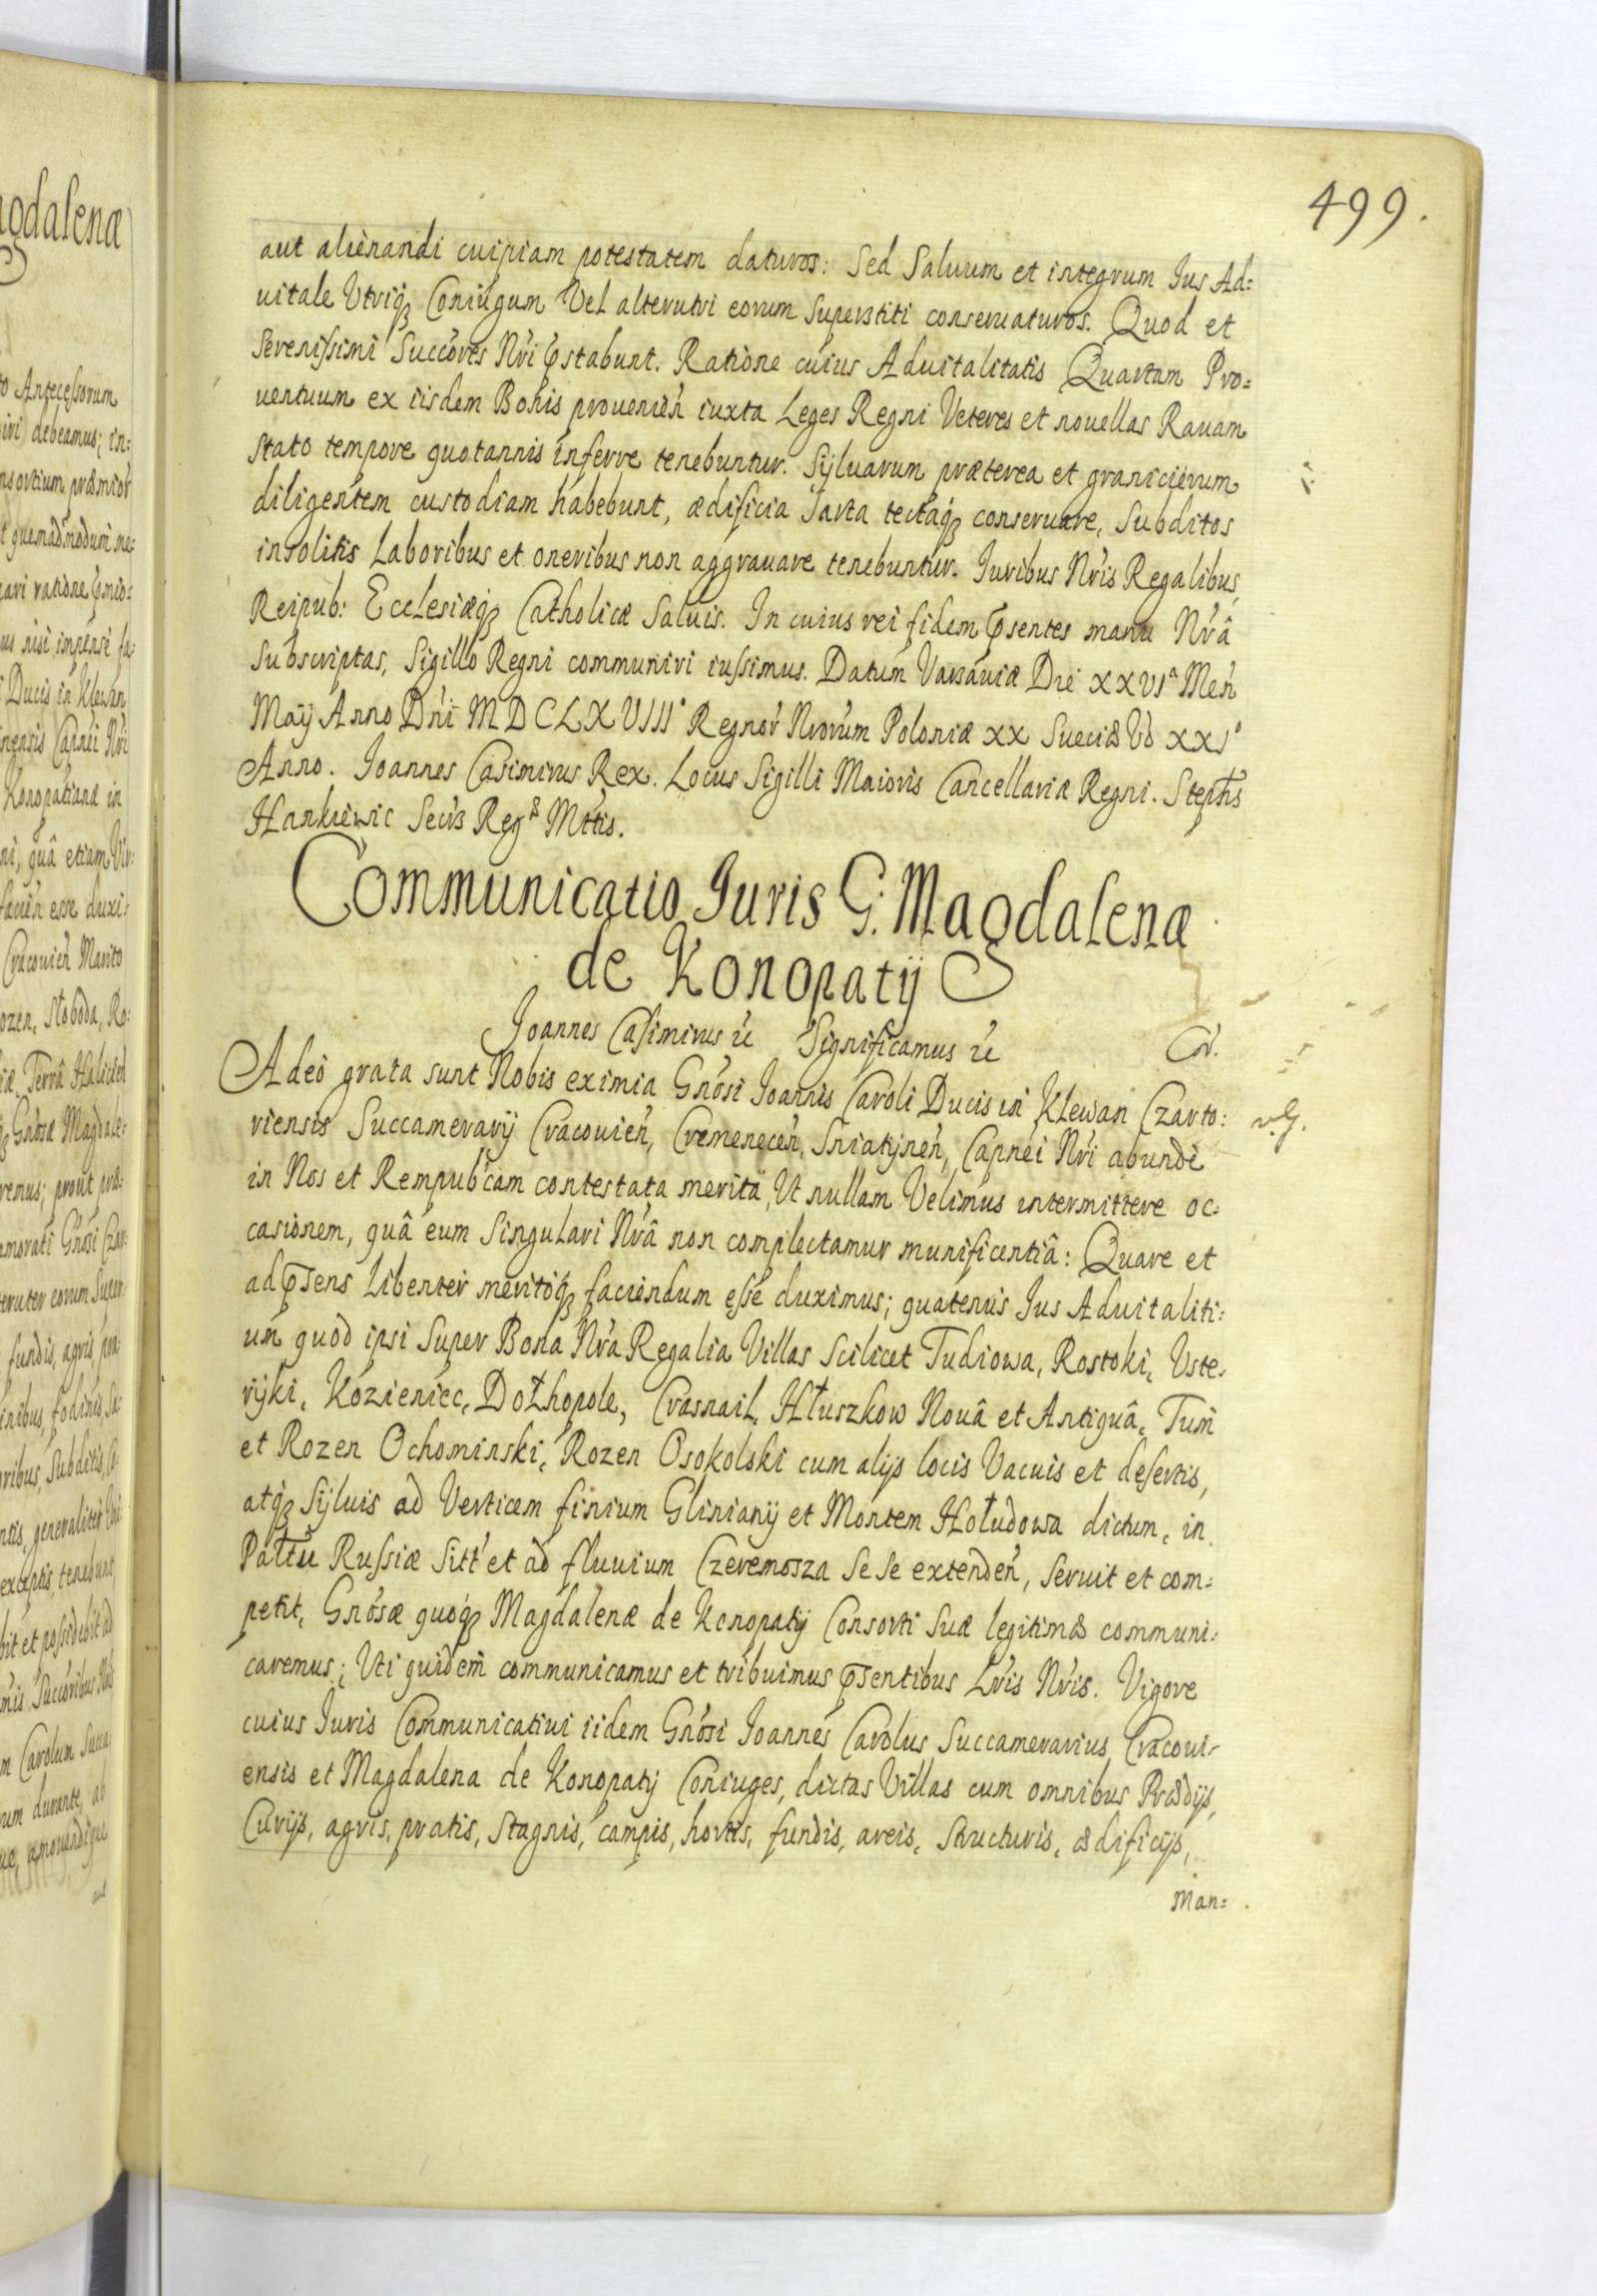 499.
aut alienandi cuipiam potestatem daturos: Sed Saluum et integrum Jus Ad=
uitale Utriq3 Coniugum Vel alterutri eorum Superstiti conseruaturos. Quod et
Serenissimi Succ̃ores Nr̃i p̃stabunt. Ratione cuius Aduitalitatis Quartam Pro=
uentuum ex iisdem Bonis prouenien̄ iuxta Leges Regni Veteres et nouellas Rauam
stato tempore quotannis inferre tenebuntur. Syluarum præterea et granicierum
diligentem custodiam habebunt, ædificia Sarta tectaq3 conseruare, Subditos
insolitis Laboribus et oneribus non aggrauare tenebuntur. Iuribus Nr̃is Regalibus
Reipub: Ecclesiæq3 Catholicæ Saluis. In cuius rei fidem p̃sentes manu Nr̃â
Subscriptas, Sigillo Regni communiri iussimus. Datum Varsauiæ Die XXVIª Men̄
Maÿ Anno Dn̄i MDCLXVIII° Regnor̄ Nrorum Poloniæ XX Sueciæ Vo XXI°
Anno. Joannes Casimirus Rex. Locus Sigilli Maioris Cancellariæ Regni. Stephs
Hankiewic Secr̃s Regæ Mttis.
Communicatio Juris G. Magdalenæ
de Konopatij
Joannes Casimirus &c Significamus &c
Adeo grata sunt Nobis eximia Gn̄osi Joannis Caroli Ducis in Klewan Czarto:
riensis Succamerarij Cracouien̄, Cremenecen̄, Sniatynen̄, Capnei Nr̃i abunde
in Nos et Rempub̃cam contestata merita, Ut nullam Velimus intermittere oc:
casionem, quâ eum Singulari Nr̃â non complectamur munificentiâ: Quare et
ad p̃sens Libenter meritoq3 faciendum esse duximus; quatenus Jus Aduitaliti:
um quod ipsi Super Bona Nr̃a Regalia Villas Scilicet Tudiowa, Rostoki, Uste:
ryki, Kozieniec, Dołhopole, Crasnail, Hłuszkow Nouâ et Antiquâ, Tum
et Rozen Ochominski, Rozen Osokolski cum alijs locis Vacuis et desertis,
atq3 Syluis ad Verticem finium Glinianij et Montem Hołudowa dictum, in
Pałttu Russiæ Sitt̄ et ad fluuium Czeremosza se se extenden̄, seruit et com:
petit, Gn̄osæ quoq3 Magdalenæ de Konopatij Consorti Suæ legitimæ communi:
caremus; Uti quidem communicamus et tribuimus p̃sentibus Lr̃is Nr̃is. Vigore
cuius Juris Communicatiui iidem Gn̄osi Joannes Carolus Succamerarius Cracoui-
ensis et Magdalena de Konopatij Coniuges, dictas Villas cum omnibus Prædijs,
Curijs, agris, pratis, Stagnis, campis, hortis, fundis, areis, structuris, ædificijs,
Man=